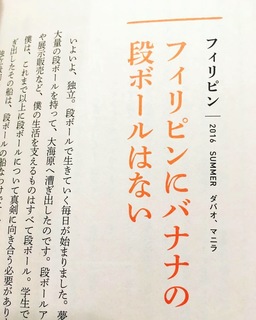 フィリピン
2016 SUMMER ダバオ、マニラ
フィリピンにバナナの
段ボールはない
いよいよ、独立。段ボールで生きていく毎日が始まりました。夢
大量の段ボールを持って、大海原へ漕ぎ出したのです。段ボールア
や展示販売など、僕の生活を支えるものはすべて段ボール。学生で
僕は、これまで以上に段ボールについて真剣に向き合う必要があり
ぎ出したその船は、段ボールの船なわけで